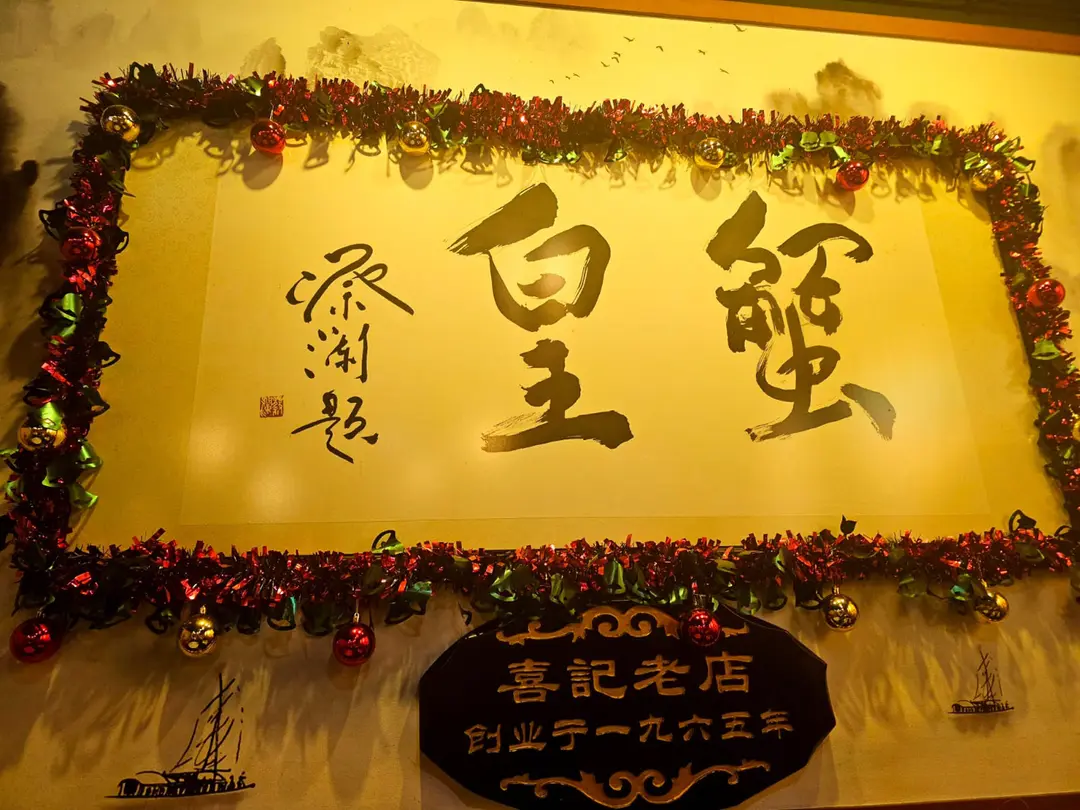 蟹皇
蔡瀾題
喜記老店
創业于一九六五年